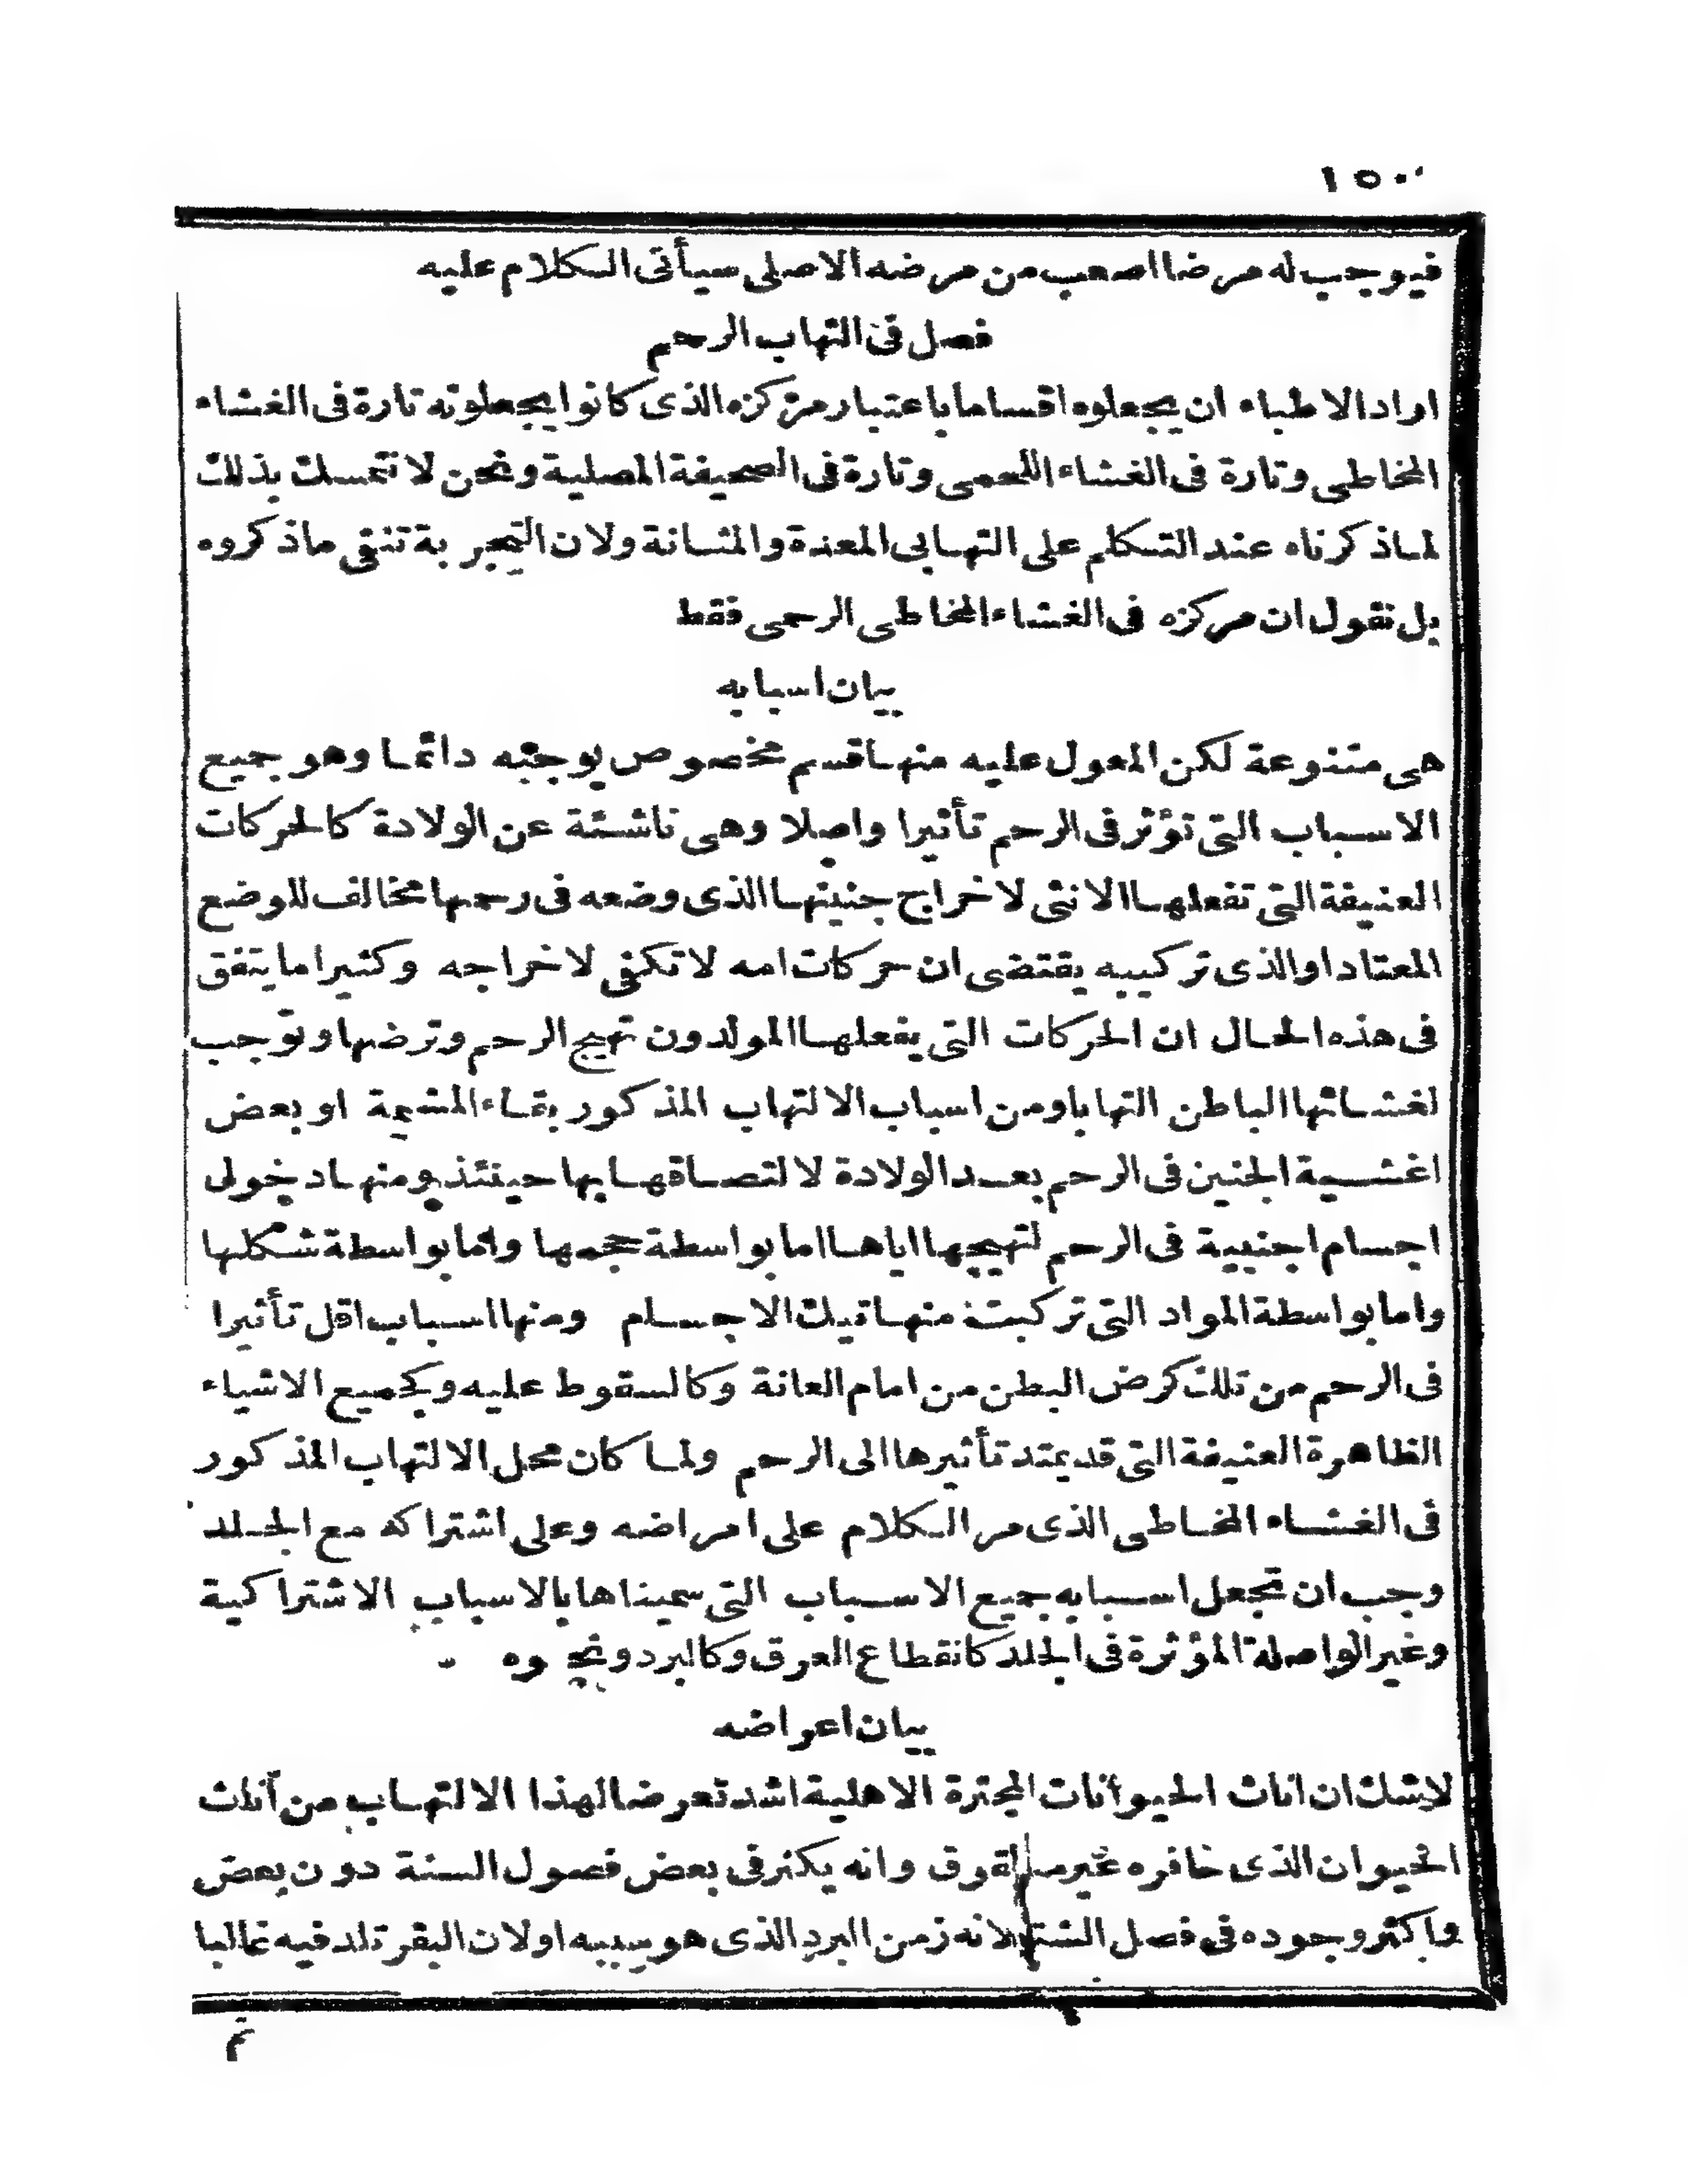 ١٥٠
فيوجب له مرضا اصعب من مرضه الاصلى سيأتى الكلام عليه
فصل فى التهاب الرحم
اراد الاطباء ان يجعلوه اقساما باعتبار مركزه الذى كانوا يجعلونه تارة فى الغشاء
المخاطى وتارة فى الغشاء اللحمى وتارة فى الصحيفة المصلية ونحن لا نتمسك بذلك
لما ذكرناه عند التكلم على التهابى المعدة والمثانة ولان التجربة تنفى ما ذكروه
بل نقول ان مركزه فى الغشاء المخاطى الرحمى فقط
بيان اسبابه
هى متنوعة لكن المعول عليه منها قسم مخصوص يوجبه دائما وهو جميع
الاسباب التى تؤثر فى الرحم تأثيرا واصلا وهى ناشئة عن الولادة كالحركات
العنيفة التى تفعلها الانثى لاخراج جنينها الذى وضعه فى رحمها مخالف للوضع
المعتاد او الذى تركيبه يقتضى ان حركات امه لا تكفى لاخراجه وكثيرا ما يتفق
فى هذه الحال ان الحركات التى يفعلها المولدون تهيج الرحم وترضها وتوجب
لغشائها الباطن التهابا ومن اسباب الالتهاب المذكور بقاء المشيمة او بعض
اغشية الجنين فى الرحم بعد الولادة لالتصاقها بها حينئذ ومنها دخول
اجسام اجنبية فى الرحم لتهييجها اياها اما بواسطة حجمها واما بواسطة شكلها
واما بواسطة المواد التى تركبت منها تيك الاجسام ومنها اسباب اقل تأثيرا
فى الرحم من تلك كرض البطن من امام العانة وكالسقوط عليه وكجميع الاشياء
الظاهرة العنيفة التى قد يمتد تأثيرها الى الرحم ولما كان محل الالتهاب المذكور
فى الغشاء المخاطى الذى مر الكلام على امراضه وعلى اشتراكه مع الجلد
وجب ان تجعل اسبابه جميع الاسباب التى سميناها بالاسباب الاشتراكية
وغير الواصلة المؤثرة فى الجلد كانقطاع العرق وكالبرد ونحوه
بيان اعراضه
لا شك ان اناث الحيوانات المجترة الاهلية اشد تعرضا لهذا الالتهاب من اناث
الحيوان الذى حافره غير مفلوق وانه يكثر فى بعض فصول السنة دون بعض
واكثر وجوده فى فصل الشتا لانه زمن البرد الذى هو سببه او لان البقر تلد فيه غالبا
ثم